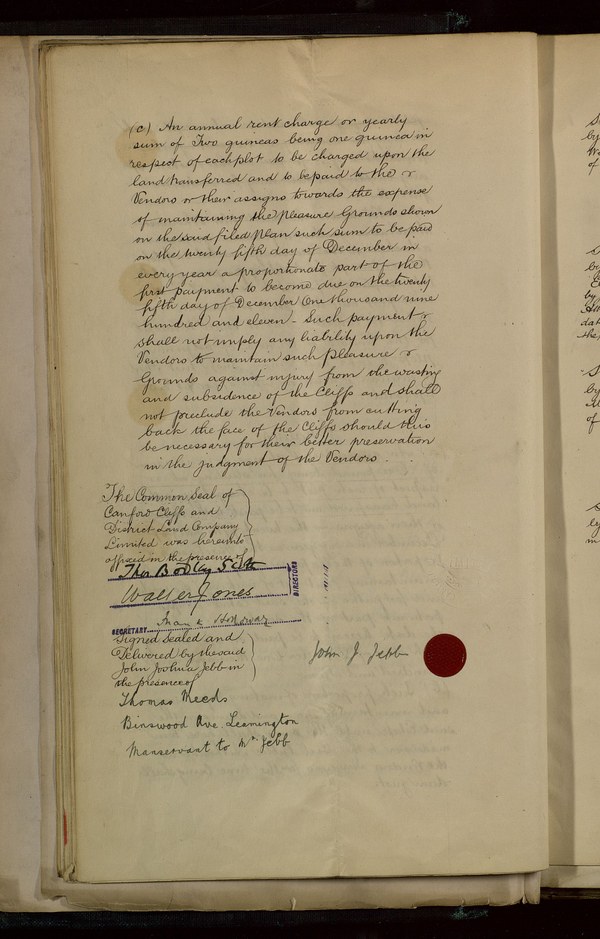 (c) An annual rent charge or yearly
sum of Two guineas being one guinea in
respect of each plot to be charged upon the
land transferred and to be paid to the
Vendors or their assigns towards the expense
of maintaining the Pleasure Grounds shown
on the said filed Plan such sum to be paid
on the twenty fifth day of December in
every year a proportionate part of the
first payment to become due on the twenty
fifth day of December One thousand nine
hundred and eleven - Such payment
shall not imply any liability upon the
Vendors to maintain such Pleasure
Grounds against injury from the wasting
and subsidence of the Cliffs and shall
not preclude the Vendors from cutting
back the face of the Cliffs should this
be necessary for their better preservation
in the judgment of the Vendors.
The Common Seal of
Canford Cliffs and
District Land Company
Limited was hereunto
affixed in the presence of
DIRECTORS
Walter Jones
SECRETARY
Signed Sealed and
Delivered by the said
John Joshua Jebb in
the presence of
John J. Jebb
Thomas Meeds
Binswood Ave. Leamington
Manservant to Mr. Jebb